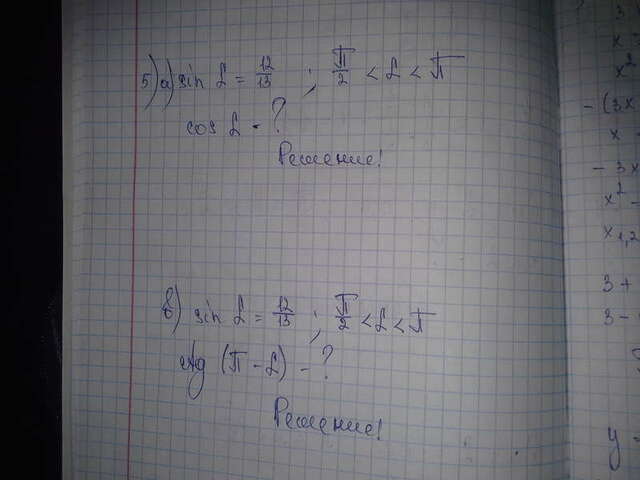 5) а) sin L = 12/13 ; π/2 < L < π
cos L - ?
Решение!
в) sin L = 12/13 ; π/2 < L < π
ctg (π - L) - ?
Решение!
3
x
x²
- (3x
x
- 3x
x² -
x₁,₂
3 +
3 -
y =